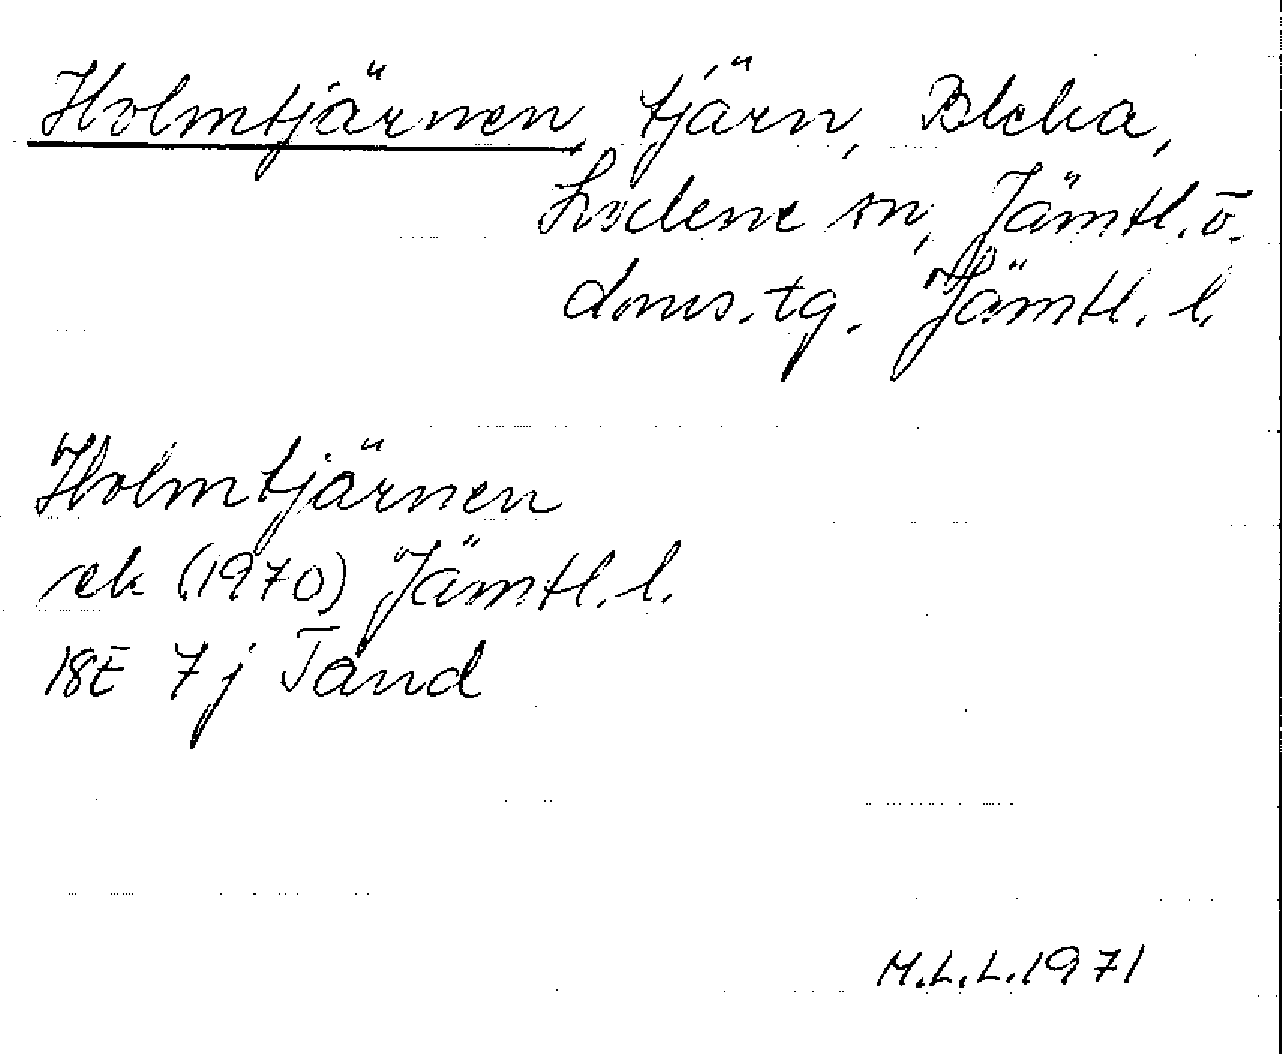 Holmtjärnen, tjärn, Bleka,
Lockne sn, Jämtl. ö.
doms. tg. Jämtl. l.
Holmtjärnen
ek (1970) Jämtl. l.
18E 7j Tand
M.L.L. 1971